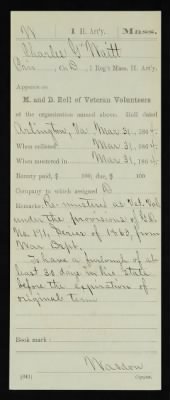 W 1 H. Art'y. Mass.
Charles G Waitt
Co. B, 1 Reg't Mass. H. Art'y.
Appears on
M. and D. Roll of Veteran Volunteers
of the organization named above. Roll dated
Arlington, Va Mar 31, 1864.
When enlisted Mar 31, 1864.
When mustered in Mar 31, 1864.
Bounty paid, $ 100; due, $ 100
Company to which assigned B
Remarks: Re-mustered as Vet. Vol.
under the provisions of G.O.
No. 191, Series of 1863, from
War Dept.
To have a furlough of at
least 30 days in his State
before the expiration of
original term
Book mark:
Copyist.